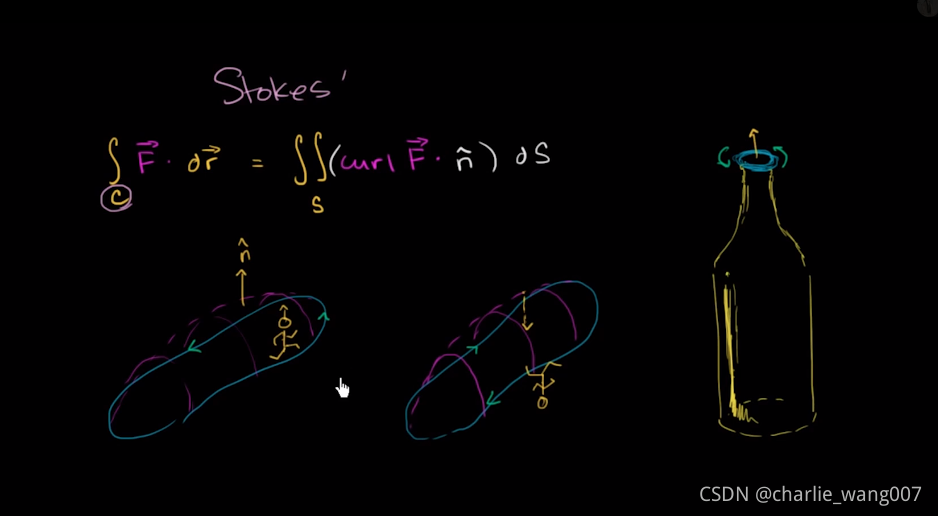 Stokes'
∫_C F⃗ · dr⃗ = ∬_S (curl F⃗ · n̂) dS
n̂
CSDN @charlie_wang007